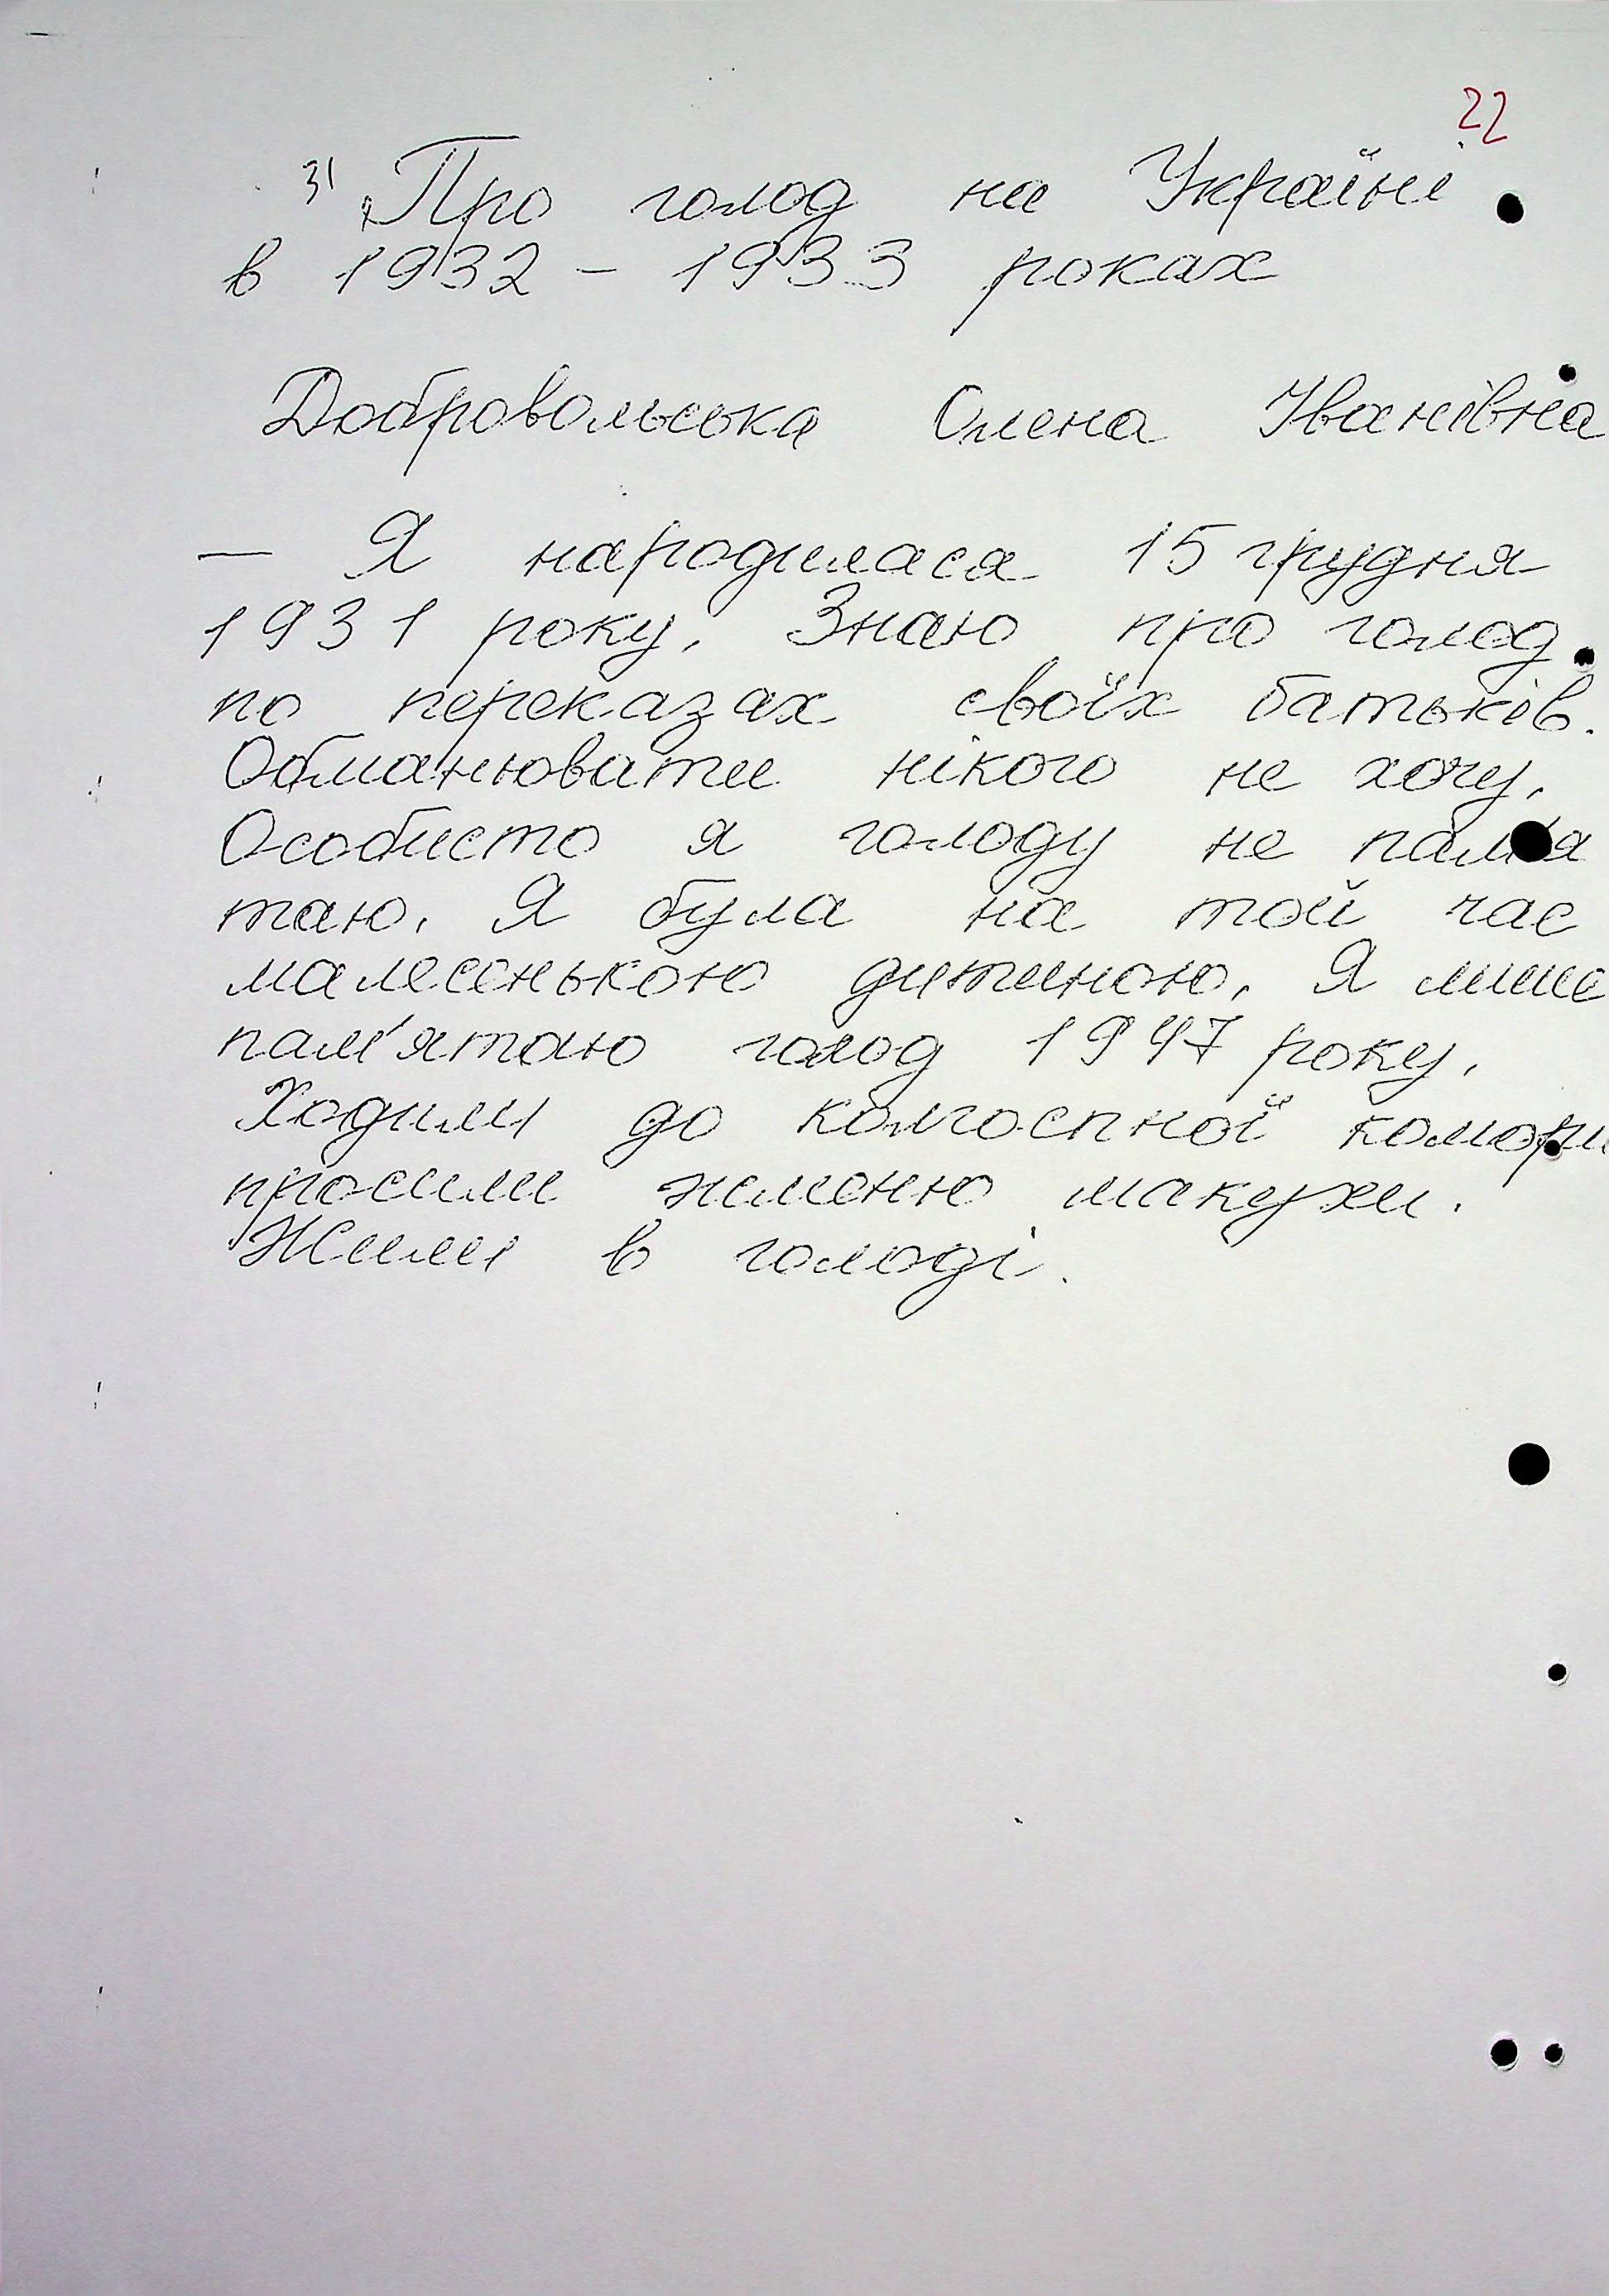 22
31 Про голод на Україні
в 1932 - 1933 роках
Добровольська Олена Іванівна
— Я народилася 15 грудня
1931 року. Знаю про голод
по переказах своїх батьків.
Обманювати нікого не хочу.
Особисто я голоду не пам'я
таю. Я була на той час
малесенькою дитиною. Я лише
пам'ятаю голод 1947 року.
Ходили до колгоспної комори
просили жменю макухи.
Жили в голоді.